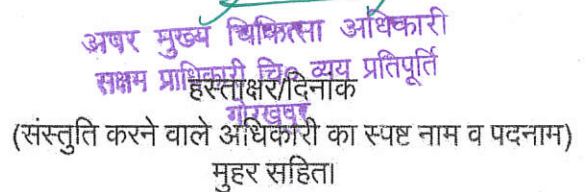 अपर मुख्य चिकित्सा अधिकारी
सक्षम प्राधिकारी चि० व्यय प्रतिपूर्ति
हस्ताक्षर/दिनांक
गोरखपुर
(संस्तुति करने वाले अधिकारी का स्पष्ट नाम व पदनाम)
मुहर सहित।